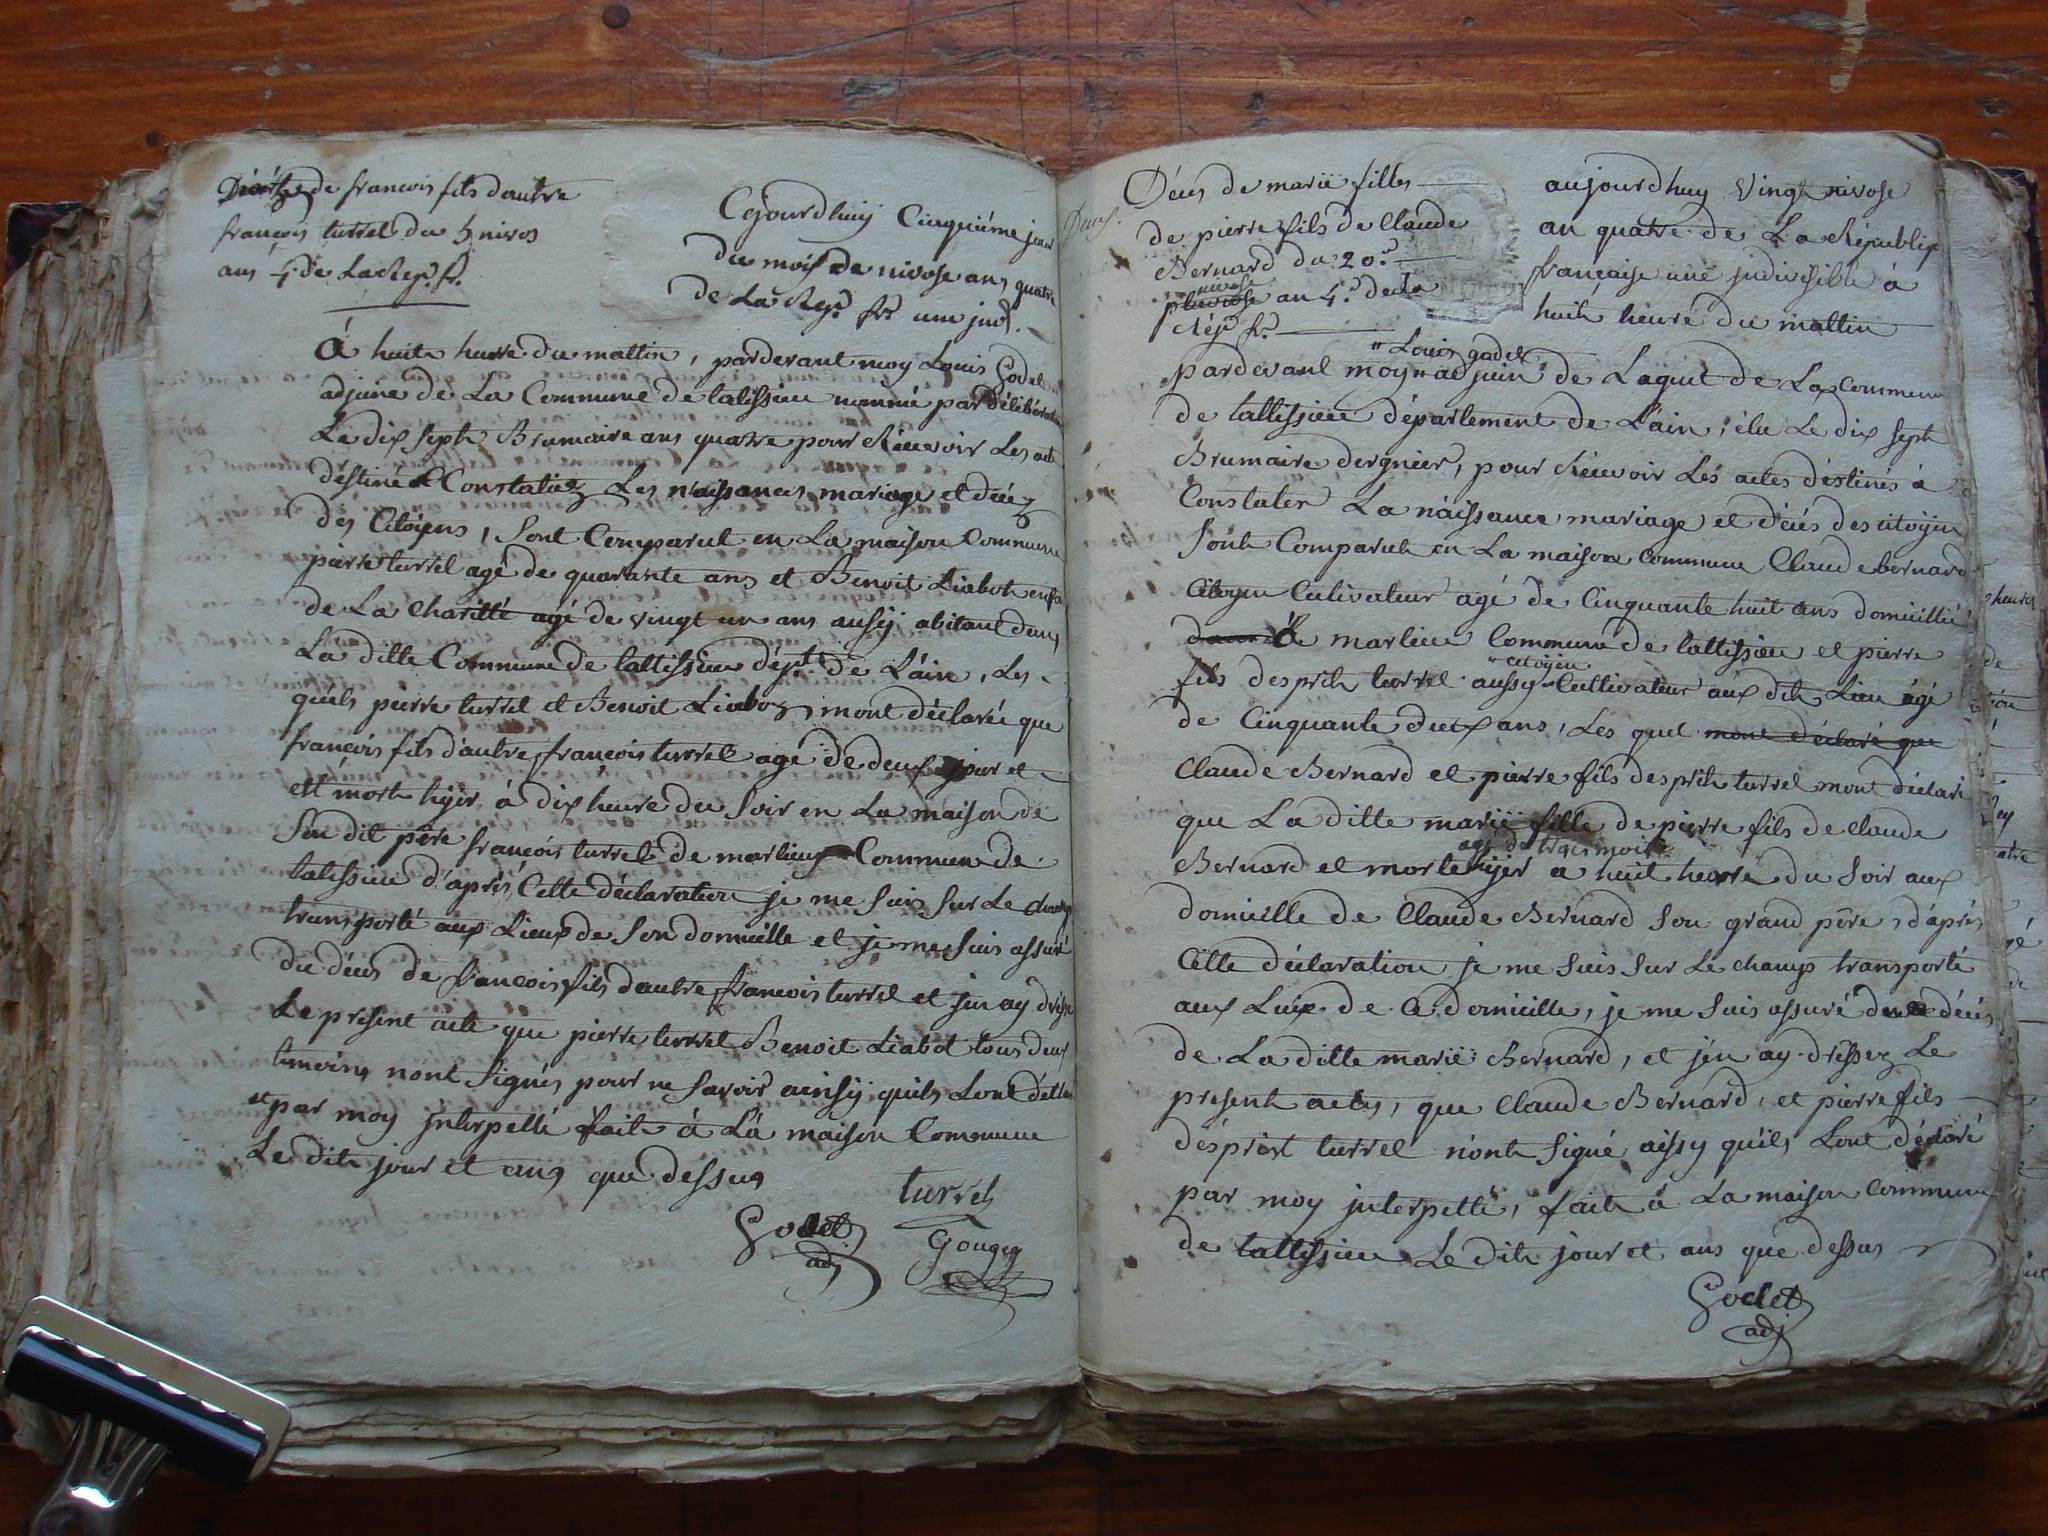 Décéz de francois fils dautre
francois turrel du 5 nivos
ans 4 de La Rep. fr.
Cejourdhuij Cinquiéme jour
du mois de nivose ans quatre
de La Rep. fr. une jnd.
á huite hurre du mattin, pardevant moy Louis Godet
adjuine de La Commune de talissieu nommé par délibération
Le dix septe Brumaire ans quatre pour Récevoir Les acte
déstiné a Constatéz Les naissances mariage et décéz
des Citoÿens, Sont Comparut en La maison Commune
pierre turrel agé de quarante ans et Benoit Liabot enfan
de La charitté agé de vingt un ans ausÿ abitant dans
La ditte Commune de talissieu dépt. de L'ain, Les
quels pierre turrel et Benoit Liaboz mont déclaréz que
francois fils dautre francois turrel agé de deux jour et
ett morte hÿer á dix heure du Soir en La maison de
Son dit pére francois turrel de marlieux Commune de
talissieu d'aprés Cette déclaration je me Suis Sur Le champ
transporté aux Lieux de Son domicille et je me Suis assuré
du décés de francois fils dautre francois turrel et jen ay dréssé
Le présent acte que pierre turrel Benoit Liabot tous deux
témoins nont Signés pour ne Savoir ainsÿ quils Lont déclaré
et par moy jnterpellé faite á La maison Commune
Le dite jour et ans que dessus
turrel
Godet
adj
Gougey
Décés de marie filles
de pierre fils de Claude
Bernard du 20.e
nivose
pluviose an 4.e de La
Rép. fr.
aujourdhuy vingt nivose
an quatre de La Républiq
française une jndivisible á
huite heure du mattin
" Louis godet
pardevant moy " adjuin de Laquit de La Commune
de tallissieu département de L'ain, élu Le dix septe
Brumaire dergnier, pour Récevoir Les actes déstinés á
Constater La naissance mariage et décés des citoyen
Sonte Comparute en La maison Commune Claude bernard
Citoyen Cultivateur agé de Cinquante huit ans domicillié
á marlieu Commune de tallissieu et pierre
" citoyen
fils desprite turrel aussy " Cultivateur aux dite Lieu agé
de Cinquante deux ans, Les quel mont déclaré que
Claude Bernard et pierre fils desprite turrel mont déclaré
que La ditte marie fille de pierre fils de Claude
agé de troes mois
Bernard et morte hÿer a huit heurre du Soir aux
domicille de Claude Bernard Son grand pére, d'aprés
Cette déclaration je me Suis Sur Le champ transporté
aux Luix de Ce domicille, je me Suis assuré du décés
de La ditte marie Bernard, et jén ay dréssez Le
présent actes, que Claude Bernard, et pierre fils
déspriet turrel nonte Signé aissy quils Lont déclaré
par moy jnterpellé, faite á La maison Commune
de tallissieu Le dite jour et ans que dessus
Godet
adj